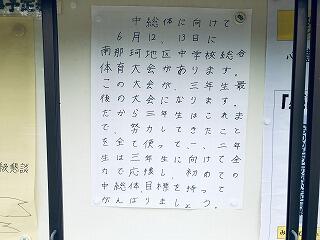 中総体に向けて
6月12、13日に
南那珂地区中学校総合
体育大会があります。
この大会が、三年生最
後の大会になります。
だから三年生はこれま
で、努力してきたこと
を全て使って一、二年
生は三年生に向けて全
力で応援し、初めての
中総体、目標を持って
がんばりましょう。
級懇談